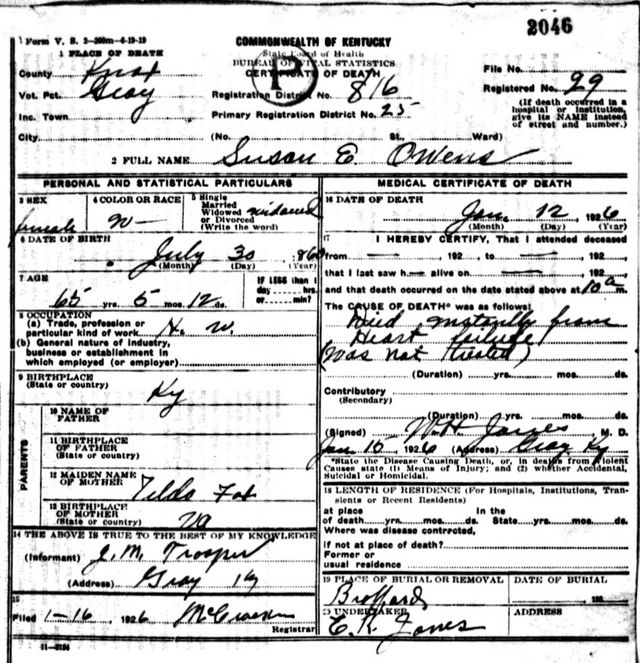 2046
Form V. S. 3-360m-4-19-19
COMMONWEALTH OF KENTUCKY
1 PLACE OF DEATH
State Board of Health
BUREAU OF VITAL STATISTICS
CERTIFICATE OF DEATH
B
County Knox
File No.
Vot. Pct. Gray
Registration District No. 816
Registered No. 29
Inc. Town
Primary Registration District No. 25
(If death occurred in a hospital or institution, give its NAME instead of street and number.)
City
(No. St. Ward)
2 FULL NAME Susan E. Owens
PERSONAL AND STATISTICAL PARTICULARS
3 SEX female
4 COLOR OR RACE W
5 Single Married Widowed or Divorced (Write the word) widowed
6 DATE OF BIRTH
July 30 , 860
(Month) (Day) (Year)
7 AGE
65 yrs. 5 mos. 12 ds.
IF LESS than 1 day hrs. or min?
8 OCCUPATION
(a) Trade, profession or particular kind of work H. W.
(b) General nature of industry, business or establishment in which employed (or employer)
9 BIRTHPLACE
(State or country)
Ky
PARENTS
10 NAME OF FATHER
11 BIRTHPLACE OF FATHER
(State or country)
12 MAIDEN NAME OF MOTHER
13 BIRTHPLACE OF MOTHER
(State or country)
Va
14 THE ABOVE IS TRUE TO THE BEST OF MY KNOWLEDGE
(Informant) J. M. Trosper
(Address) Gray Ky
15
Filed 1-16, 1926
Registrar
11-3184
MEDICAL CERTIFICATE OF DEATH
16 DATE OF DEATH
Jan. 12, 1926
(Month) (Day) (Year)
17 I HEREBY CERTIFY, That I attended deceased
from — 192 to — , 192
that I last saw h— alive on — , 192
and that death occurred on the date stated above at 10 a m.
The CAUSE OF DEATH* was as follows:
Died instantly from
Heart failure
(Was not treated)
(Duration) yrs. mos. ds.
Contributory
(Secondary)
(Duration) yrs. mos. ds.
(Signed) W. H. Jones M. D.
Jan 1926 (Address) Gray Ky
*State the Disease Causing Death, or, in deaths from Violent Causes state (1) Means of Injury; and (2) whether Accidental, Suicidal or Homicidal.
18 LENGTH OF RESIDENCE (For Hospitals, Institutions, Transients or Recent Residents)
at place of death yrs. mos. ds. In the State yrs. mos. ds.
Where was disease contracted,
if not at place of death?
Former or usual residence
19 PLACE OF BURIAL OR REMOVAL
DATE OF BURIAL
192
20 UNDERTAKER
ADDRESS
E. R. Jones